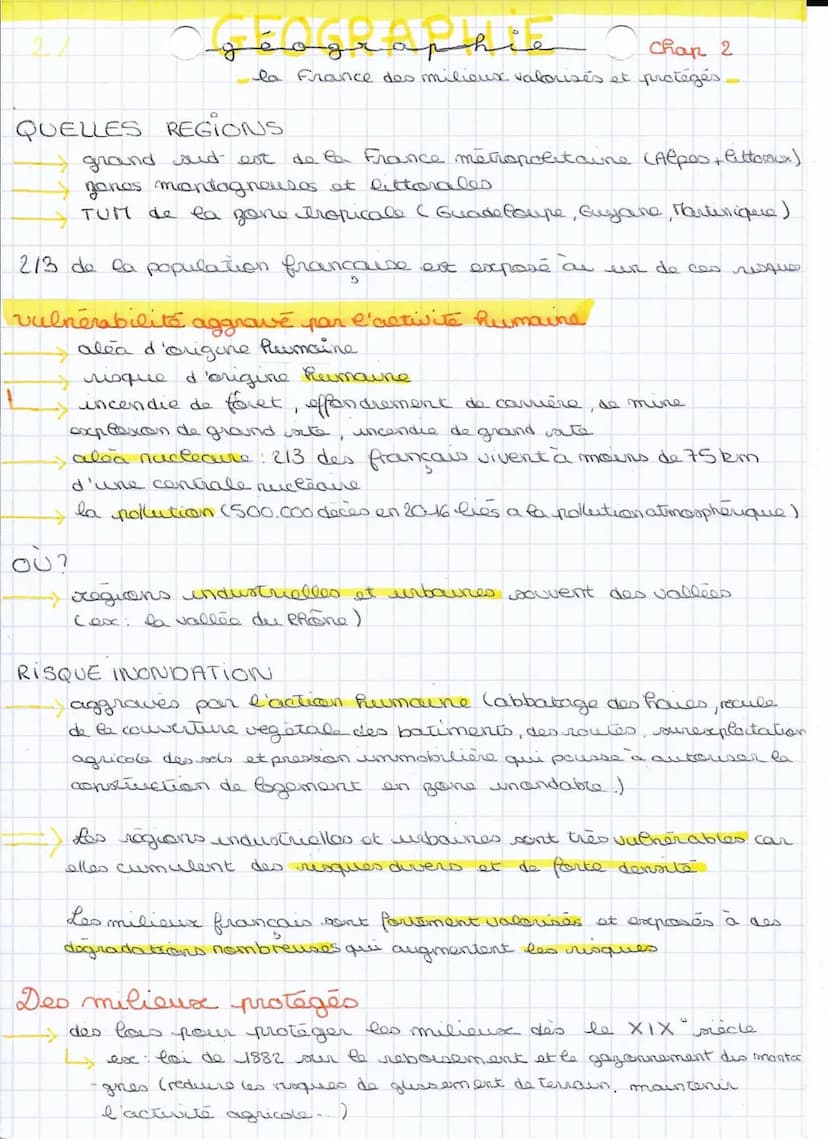 2/ GEOGRAPHIE
géographie Chap 2
la France des milieux valorisés et protégés
QUELLES REGIONS
→ grand sud est de la France métropolitaine (Alpes + littoraux)
→ zones montagneuses et littorales
→ TUM de la zone tropicale (Guadeloupe, Guyane, Martinique)
2/3 de la population française est exposé à un de ces risques
vulnérabilité aggravé par l'activité humaine
→ aléa d'origine humaine
→ risque d'origine humaine
→ incendie de forêt, effondrement de carrière, de mine
explosion de grand site, incendie de grand site
→ aléa nucléaire : 2/3 des français vivent à moins de 75 km
d'une centrale nucléaire
→ la pollution (500.000 décès en 2016 liés a la pollution atmosphérique)
OÙ?
→ régions industrielles et urbaines souvent des vallées
(ex: la vallée du Rhône)
RISQUE INONDATION
→ aggravés par l'action humaine (abbatage des haies, recule
de la couverture végétale des batiments, des routes, surexploitation
agricole des sols et pression immobilière qui pousse à autoriser la
construction de logement en zone inondable.)
⇒ les régions industrielles et urbaines sont très vulnérables car
elles cumulent des risques divers et de forte densité
Les milieux français sont fortement valorisés et exposés à des
dégradations nombreuses qui augmentent les risques
Des milieux protégés
→ des lois pour protéger les milieux dès le XIX° siècle
↳ ex : loi de 1882 sur le reboisement et le gazonnement des monta
-gnes (réduire les risques de glissement de terrain, maintenir
l'activité agricole...)